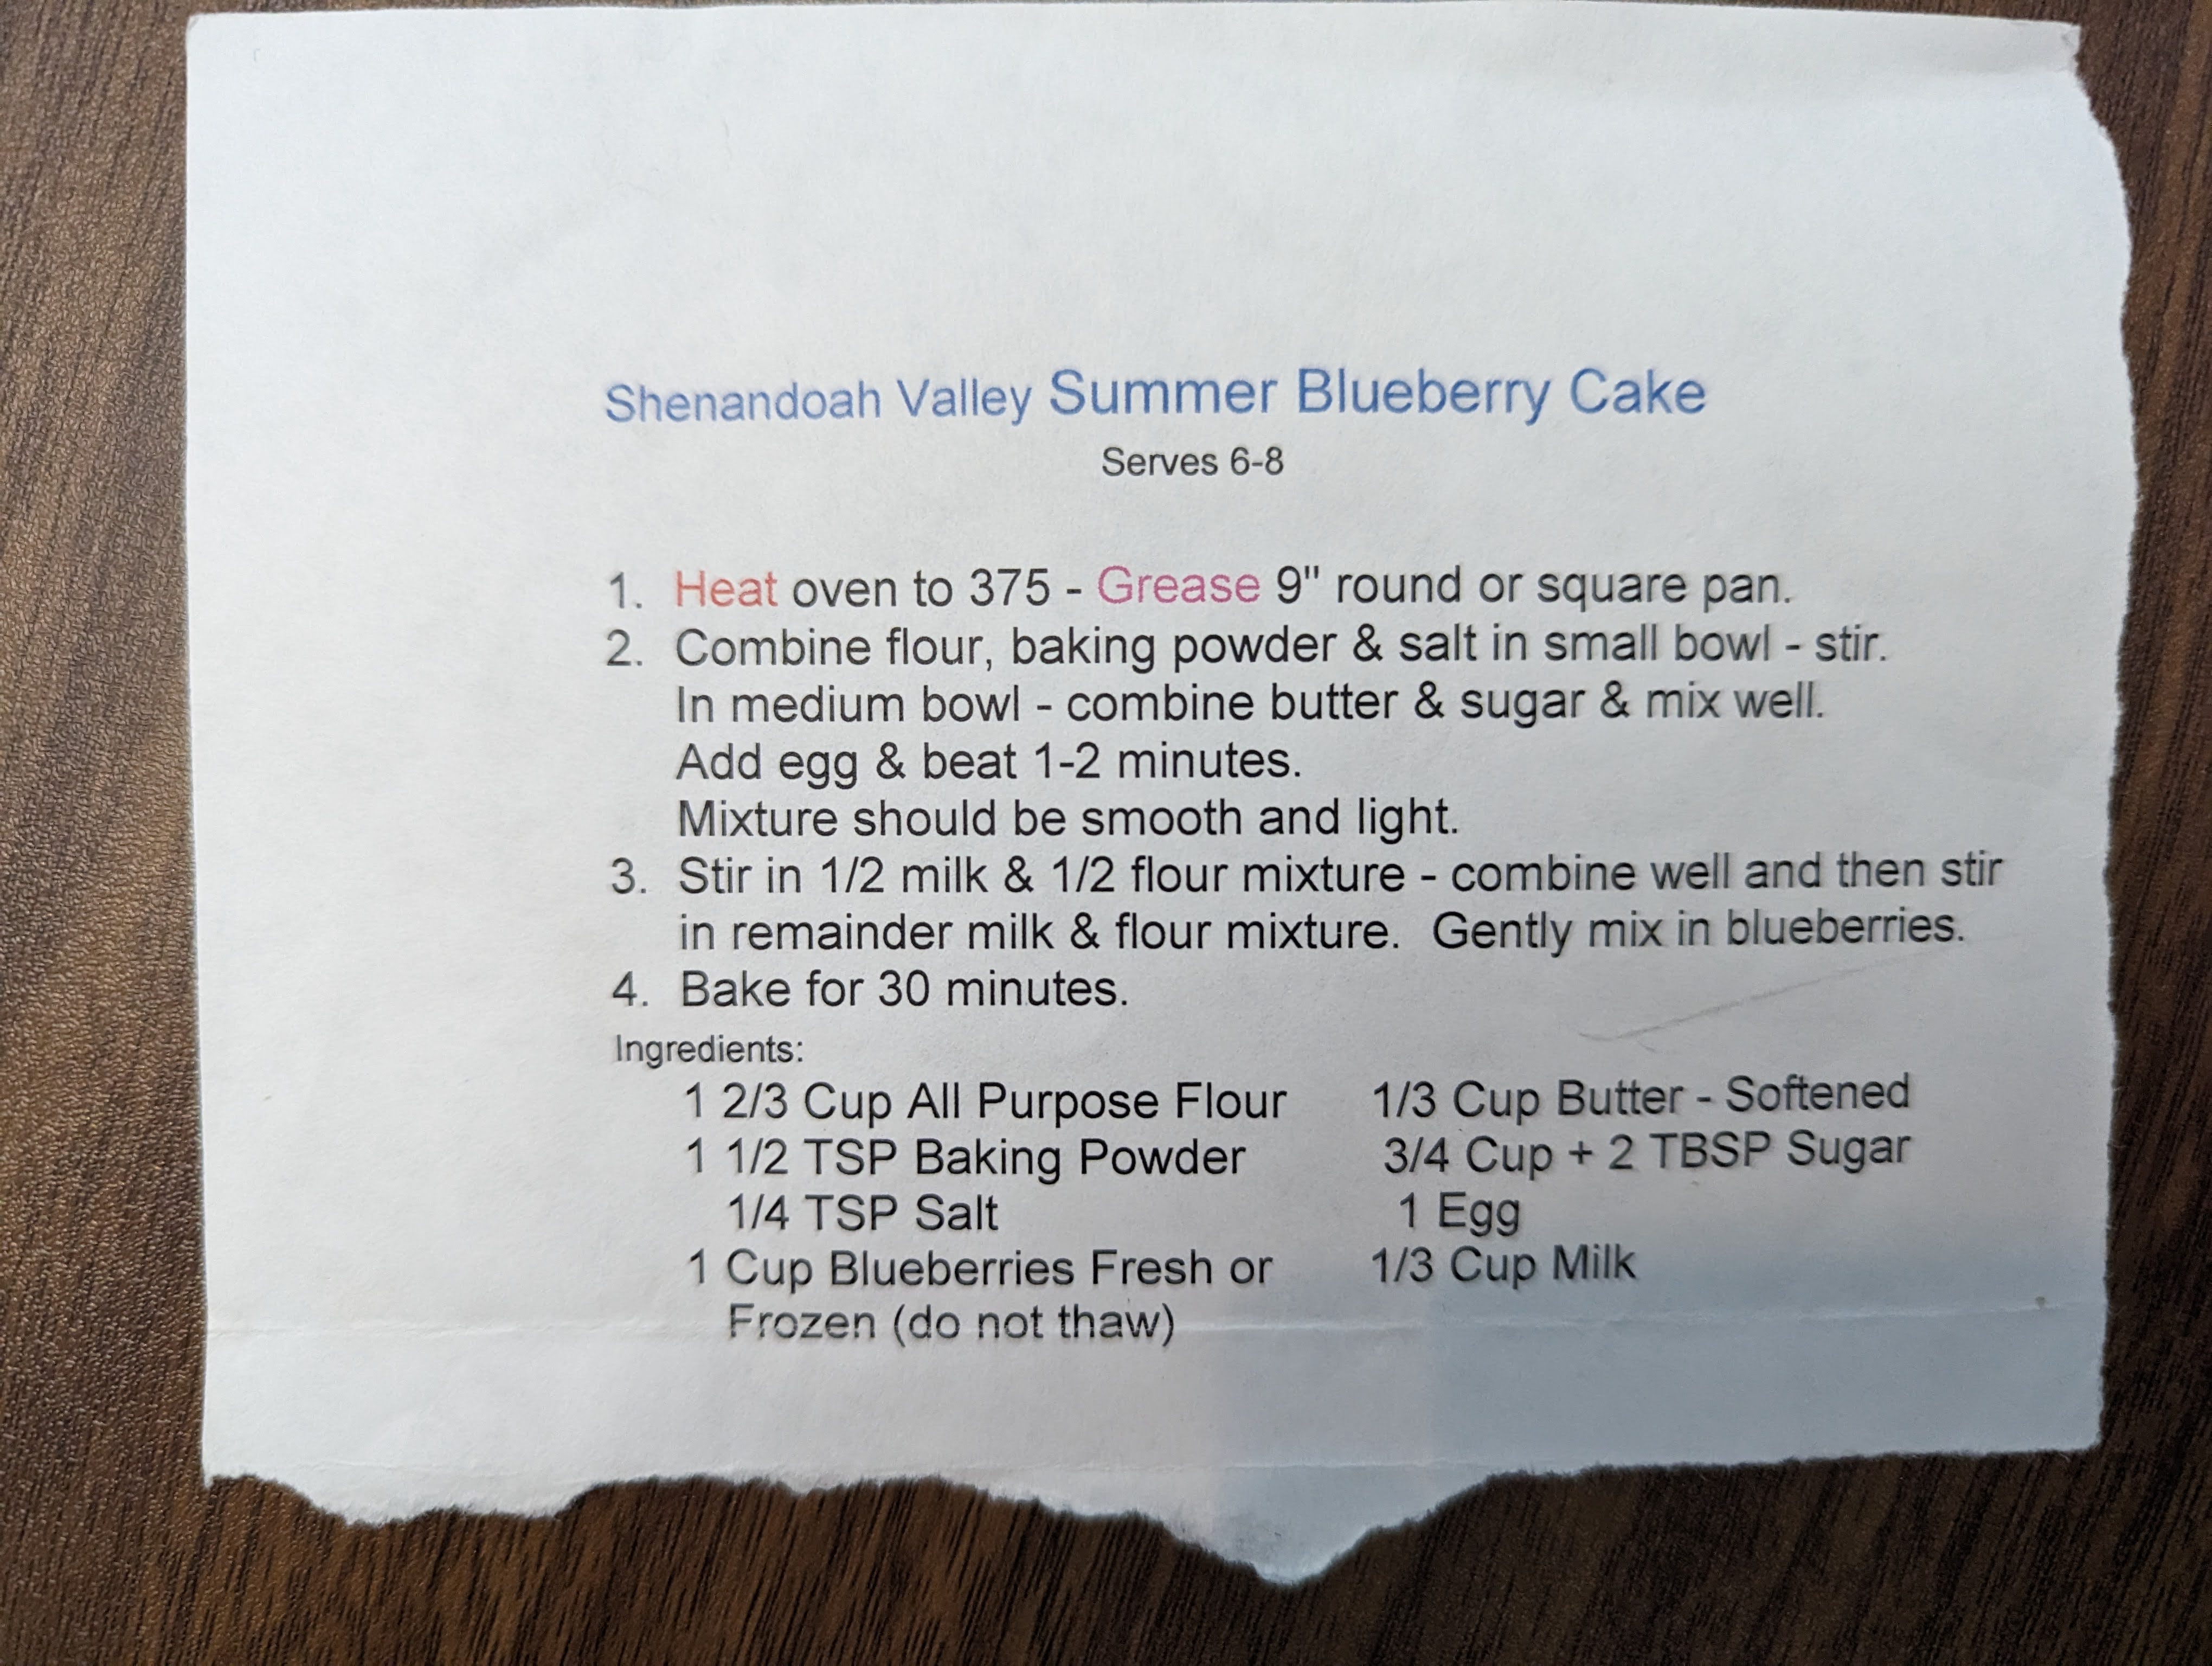 Shenandoah Valley Summer Blueberry Cake
Serves 6-8
1. Heat oven to 375 - Grease 9" round or square pan.
2. Combine flour, baking powder & salt in small bowl - stir.
In medium bowl - combine butter & sugar & mix well.
Add egg & beat 1-2 minutes.
Mixture should be smooth and light.
3. Stir in 1/2 milk & 1/2 flour mixture - combine well and then stir
in remainder milk & flour mixture. Gently mix in blueberries.
4. Bake for 30 minutes.
Ingredients:
1 2/3 Cup All Purpose Flour 1/3 Cup Butter - Softened
1 1/2 TSP Baking Powder 3/4 Cup + 2 TBSP Sugar
1/4 TSP Salt 1 Egg
1 Cup Blueberries Fresh or 1/3 Cup Milk
Frozen (do not thaw)